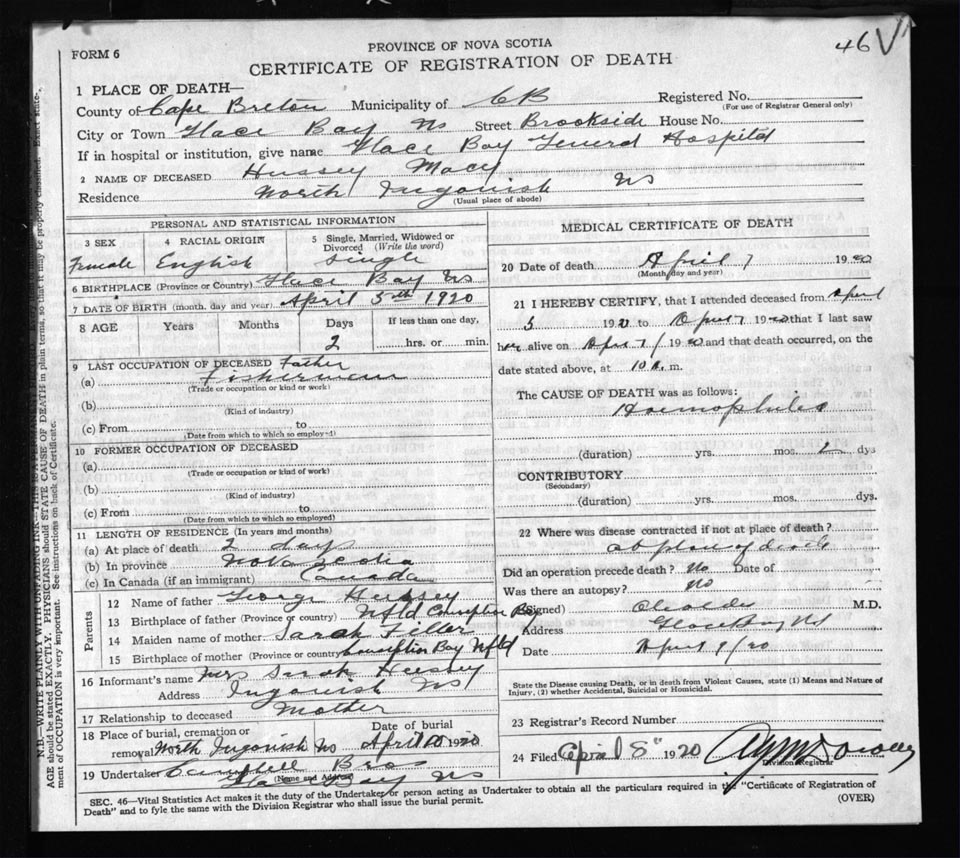 46 V
FORM 6
PROVINCE OF NOVA SCOTIA
CERTIFICATE OF REGISTRATION OF DEATH
1 PLACE OF DEATH—
County of Cape Breton Municipality of CB Registered No.
(For use of Registrar General only)
City or Town Glace Bay NS Street Brookside House No.
If in hospital or institution, give name Glace Bay General Hospital
2 NAME OF DECEASED Hussey Mary
Residence North Ingonish NS
(Usual place of abode)
PERSONAL AND STATISTICAL INFORMATION
3 SEX 4 RACIAL ORIGIN 5 Single, Married, Widowed or Divorced (Write the word)
Female English Single
6 BIRTHPLACE (Province or Country) Glace Bay NS
7 DATE OF BIRTH (month, day and year) April 5th 1920
8 AGE Years Months Days If less than one day,
2 hrs. or min.
9 LAST OCCUPATION OF DECEASED Father
(a) Fisherman
(Trade or occupation or kind of work)
(b)
(Kind of industry)
(c) From to
(Date from which to which so employ-d)
10 FORMER OCCUPATION OF DECEASED
(a)
(Trade or occupation or kind of work)
(b)
(Kind of industry)
(c) From to
(Date from which to which so employed)
11 LENGTH OF RESIDENCE (In years and months)
(a) At place of death 2 days
(b) In province Nova Scotia
(c) In Canada (if an immigrant) Canada
Parents
12 Name of father George Hussey
13 Birthplace of father (Province or country) Nfld Conception Bay
14 Maiden name of mother Sarah
15 Birthplace of mother (Province or country) Conception Bay Nfld
16 Informant's name Mrs Sarah Hussey
Address Ingonish NS
17 Relationship to deceased Mother
18 Place of burial, cremation or Date of burial
removal North Ingonish NS April 10 1920
19 Undertaker Campbell Bros
(Name and Address)
Glace Bay NS
MEDICAL CERTIFICATE OF DEATH
20 Date of death April 7 1920
(Month, day and year)
21 I HEREBY CERTIFY, that I attended deceased from April
5 1920 to April 7 1920 that I last saw
her alive on April 7 1920 and that death occurred, on the
date stated above, at 10 a. m.
The CAUSE OF DEATH was as follows:
Haemophilia
(duration) yrs. mos. 2 dys
CONTRIBUTORY
(Secondary)
(duration) yrs. mos. dys.
22 Where was disease contracted if not at place of death?
at place of death
Did an operation precede death? No Date of
Was there an autopsy? No
(Signed) M.D.
Address Glace Bay NS
Date April 9/20
State the Disease causing Death, or in death from Violent Causes, state (1) Means and Nature of
Injury, (2) whether Accidental, Suicidal or Homicidal.
23 Registrar's Record Number
24 Filed April 8th 1920
Division Registrar
SEC. 46—Vital Statistics Act makes it the duty of the Undertaker or person acting as Undertaker to obtain all the particulars required in the "Certificate of Registration of
Death" and to fyle the same with the Division Registrar who shall issue the burial permit.
(OVER)
N.B.—WRITE PLAINLY WITH UNFADING INK
AGE should be stated EXACTLY. PHYSICIANS should STATE CAUSE OF DEATH in plain terms, so that it may be properly classified. Exact state-
ment of OCCUPATION is very important. See instructions on back of Certificate.